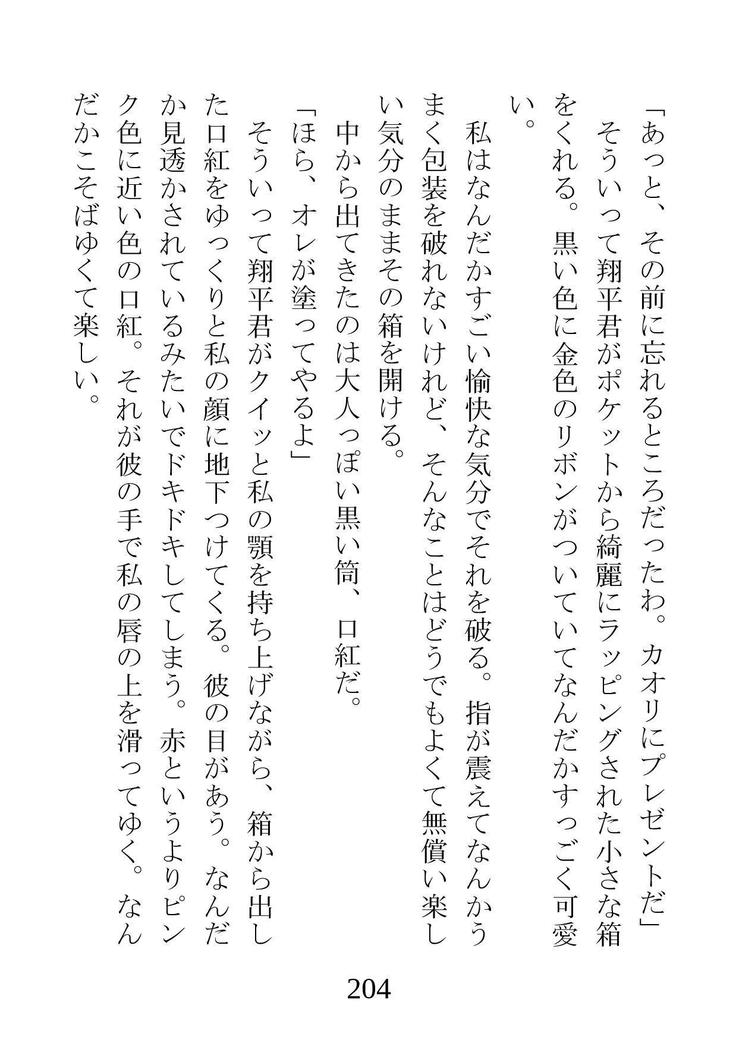 「あっと、その前に忘れるところだったわ。カオリにプレゼントだ」
そういって翔平君がポケットから綺麗にラッピングされた小さな箱
をくれる。黒い色に金色のリボンがついていてなんだかすっごく可愛
い。
私はなんだかすごい愉快な気分でそれを破る。指が震えてなんかう
まく包装を破れないけれど、そんなことはどうでもよくて無償い楽し
い気分のままその箱を開ける。
中から出てきたのは大人っぽい黒い筒、口紅だ。
「ほら、オレが塗ってやるよ」
そういって翔平君がクイッと私の顎を持ち上げながら、箱から出し
た口紅をゆっくりと私の顔に地下つけてくる。彼の目があう。なんだ
か見透かされているみたいでドキドキしてしまう。赤というよりピン
ク色に近い色の口紅。それが彼の手で私の唇の上を滑ってゆく。なん
だかこそばゆくて楽しい。
204